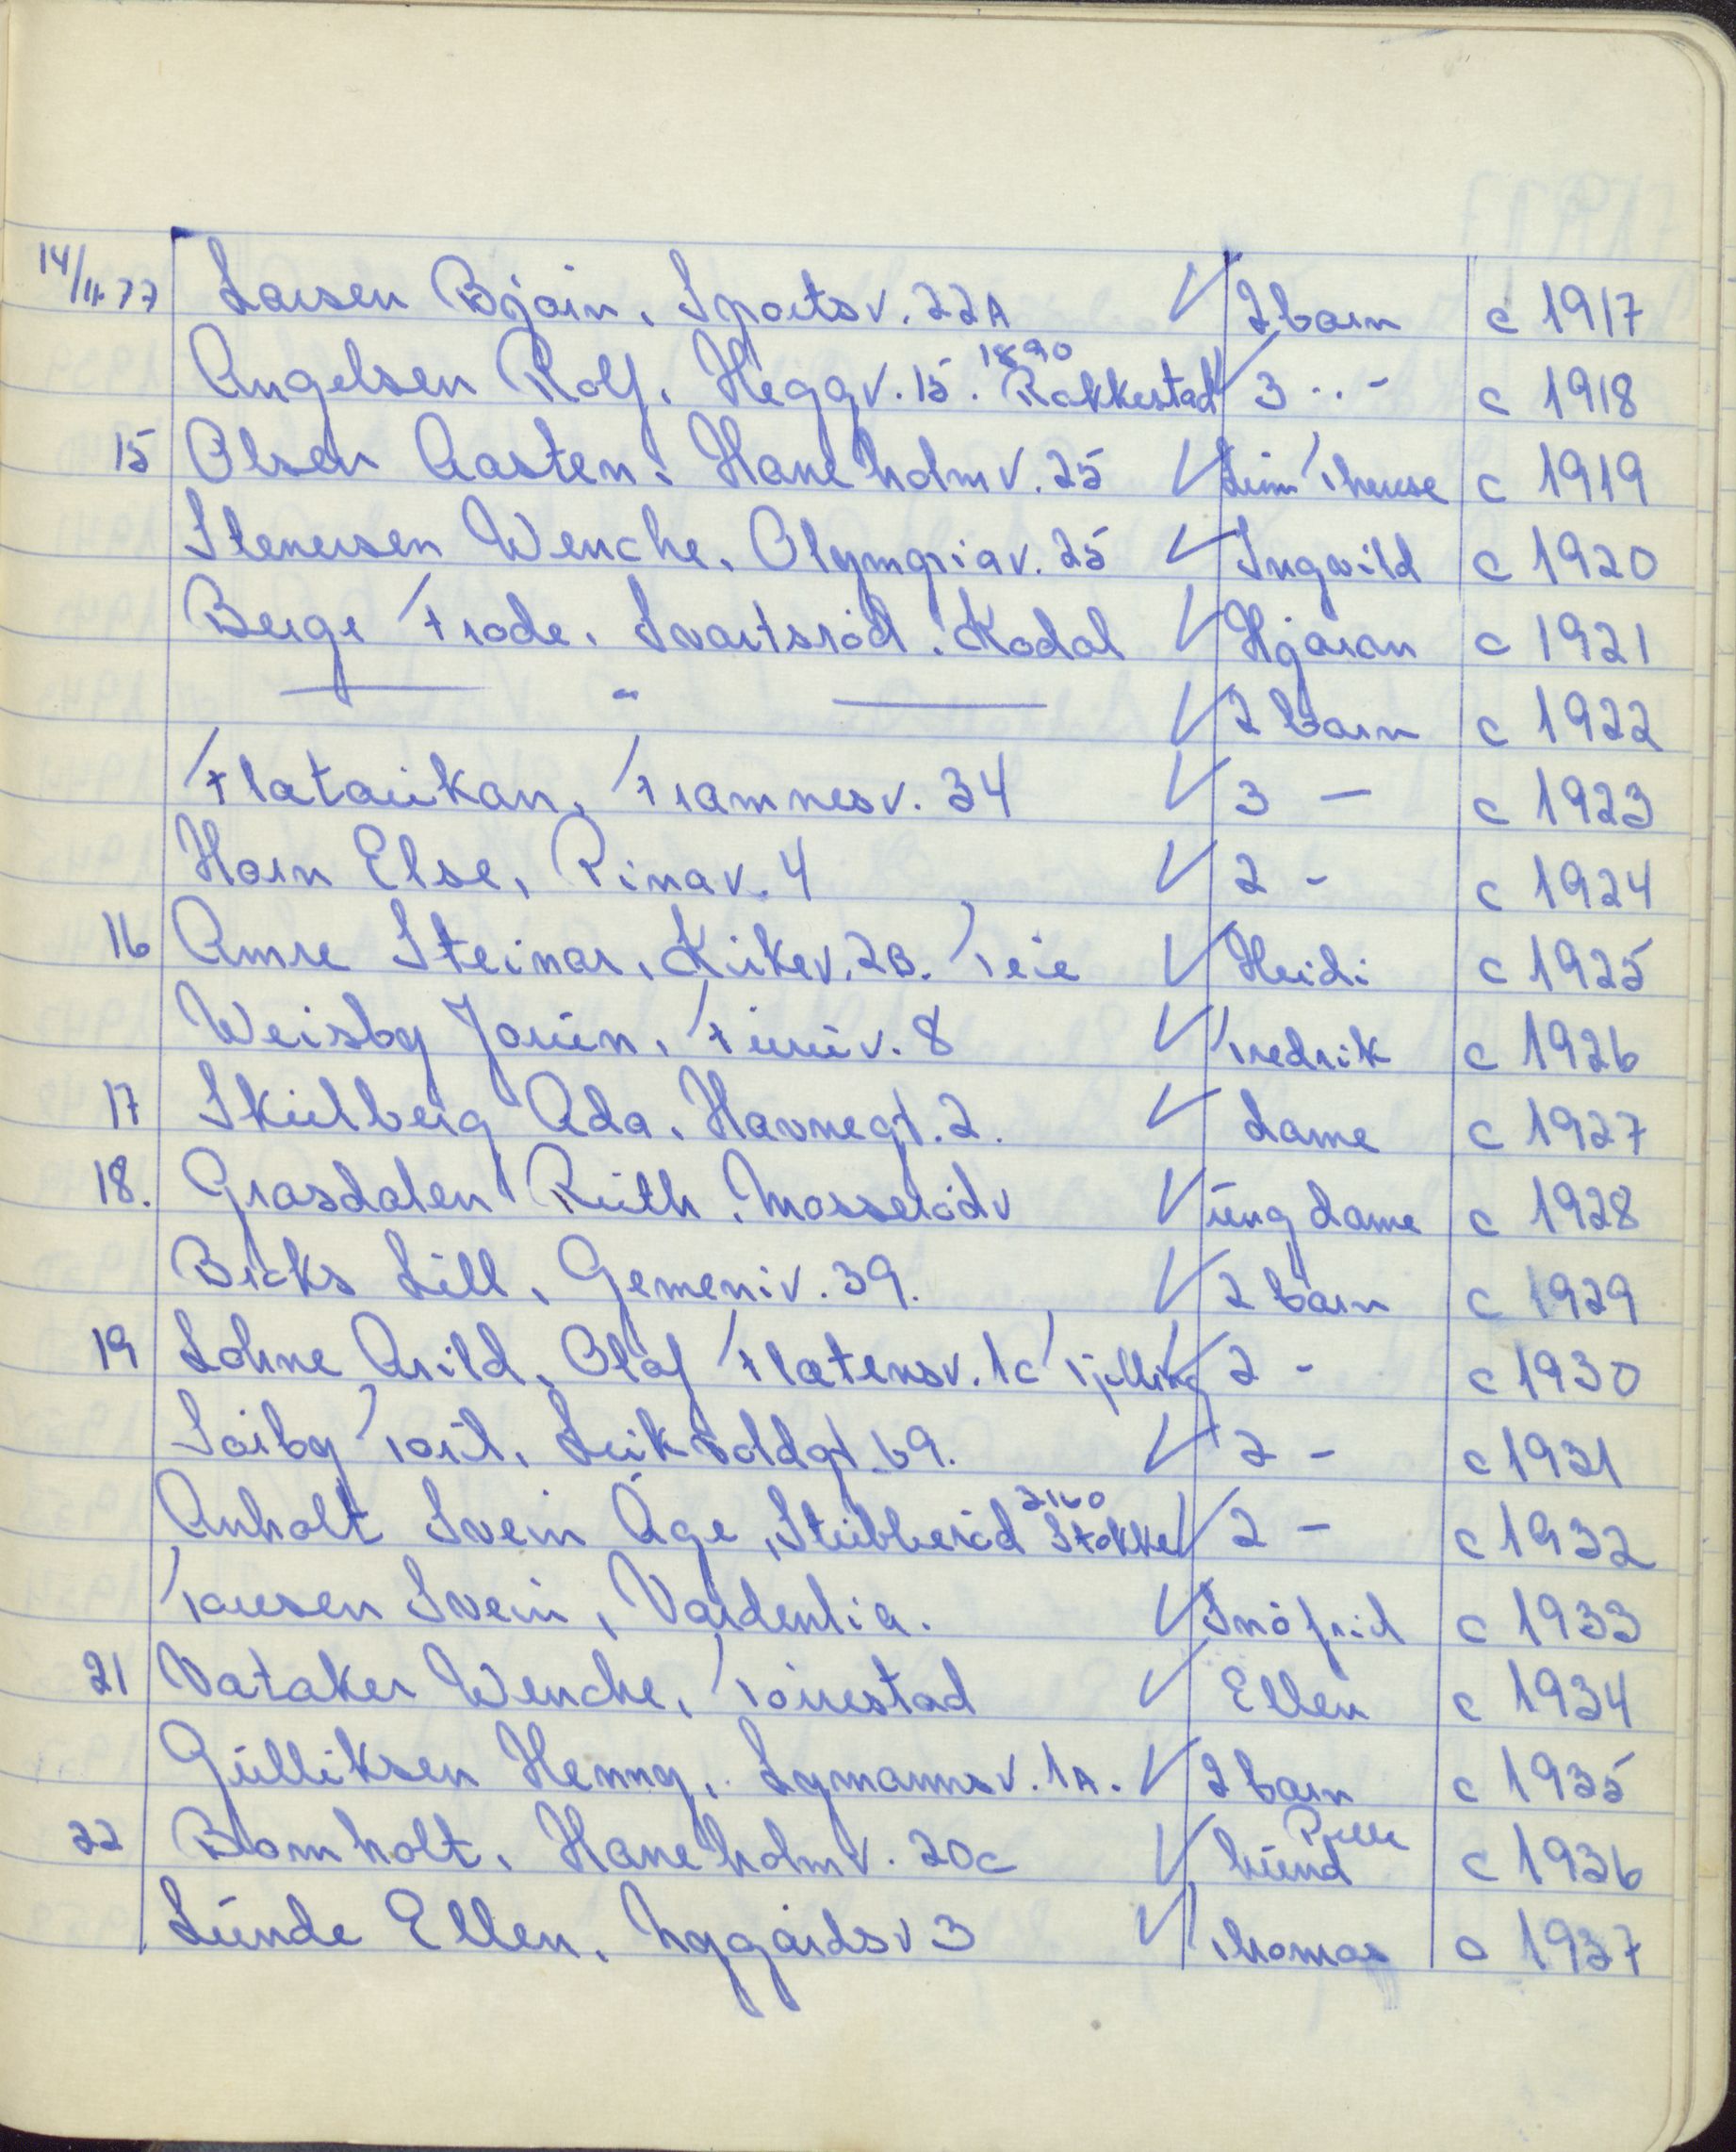 14/11.77 Larsen Bjørn, Sportsv. 22A ✓ 2 barn c 1917
Angelsen Rolf, Heggv. 15. 1890 Rakkestad ✓ 3 -"- c 1918
15 Olsen Aasten, Haneholmv. 25 ✓ Linn Therese c 1919
Stenersen Wenche, Olympiav. 25 ✓ Ingvild c 1920
Berge Frode, Svartsrød, Kodal ✓ Hjøran c 1921
— " — ✓ 2 barn c 1922
Flatarikan, Framnesv. 34 ✓ 3 - c 1923
Horn Else, Rinav. 4 ✓ 2 - c 1924
16 Amre Steinar, Kirkev. 2B. Teie ✓ Heidi c 1925
Weisby Jorun, Furuv. 8 ✓ Fredrik c 1926
17 Skulberg Ada, Havnegt. 2. ✓ Dame c 1927
18. Grasdalen Ruth, Mosserødv ✓ ung dame c 1928
Bicks Lill, Gemeniv. 39. ✓ 2 barn c 1929
19 Lohne Arild, Olaf Flatensv. 1c Tjølling ✓ 2 - c 1930
Sørby Toril, Leikvollgt. 69. ✓ 2 - c 1931
Anholt Svein Åge, Stubberød 3160 Stokke ✓ 2 - c 1932
Torsen Svein, Vardenlia. ✓ Snøfrid c 1933
21 Vataker Wenche, Torrestad ✓ Ellen c 1934
Gulliksen Henny, Lymannsv. 1A. ✓ 2 barn c 1935
22 Bomholt, Haneholmv. 20c ✓ hund Pelle c 1936
Lunde Ellen, Nygårdsv 3 ✓ Thomas c 1937